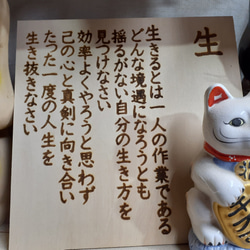 生
生きるとは一人の作業である
どんな境遇になろうとも
揺るがない自分の生き方を
見つけなさい
効率よくやろうと思わず
己の心と真剣に向き合い
たった一度の人生を
生き抜きなさい